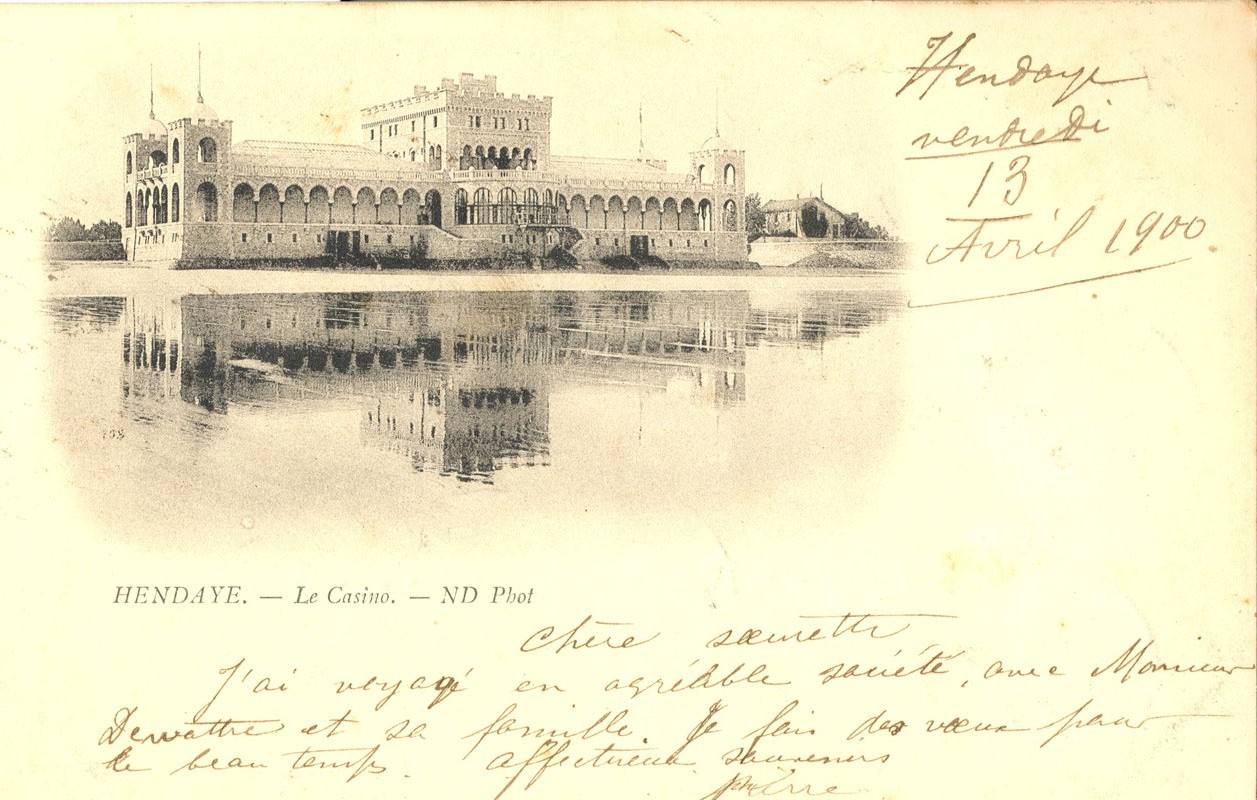 Hendaye
vendredi
13
Avril 1900
HENDAYE. — Le Casino. — ND Phot
chère sœurette
J'ai voyagé en agréable société, avec Monsieur
et sa famille. Je fais des vœux pour
le beau temps. Affectueux souvenirs
Pierre